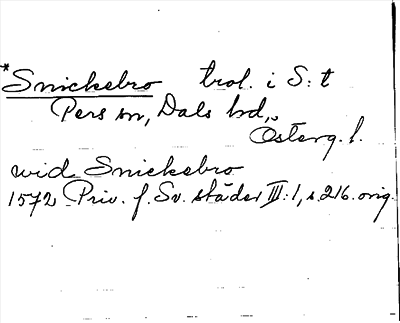 *Snickebro trol. i S:t
Pers sn, Dals hd,
Österg. l.
wid Snickebro
1572 Priv. f. Sv. städer III:1, s. 216. orig.